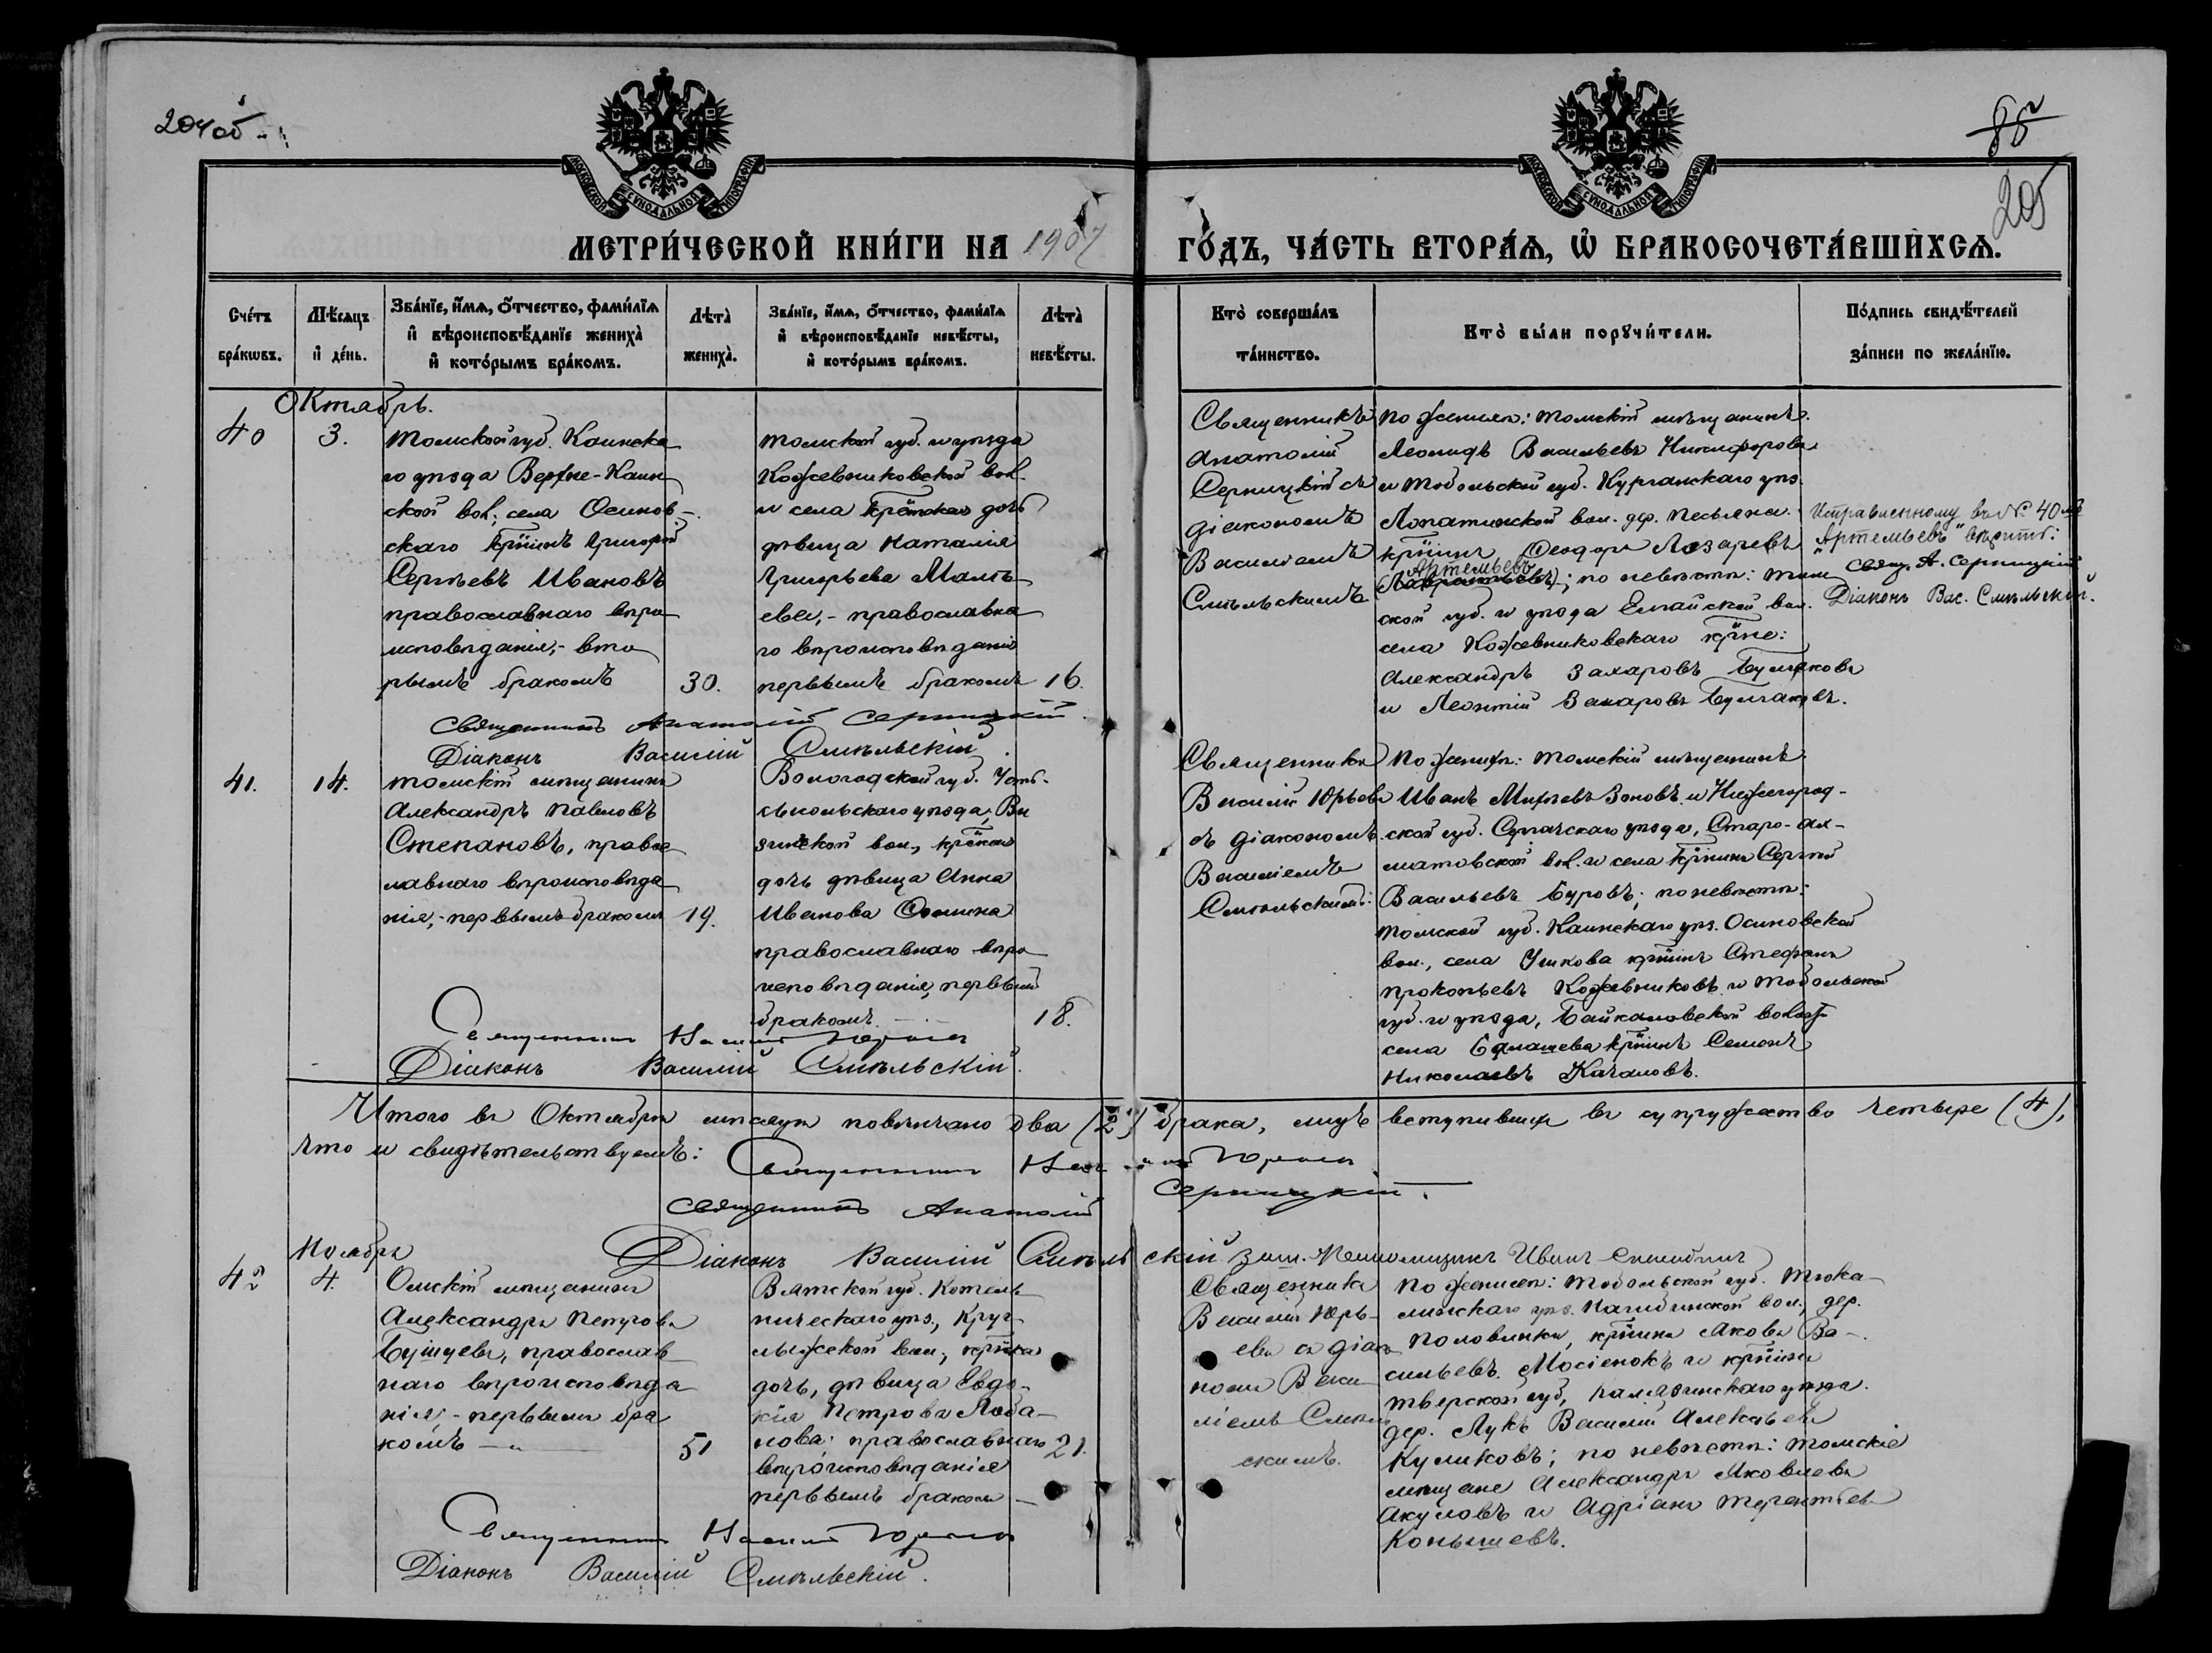 204 об
85
205
МОСКОВСКОЙ СѴНОДАЛЬНОЙ ТИПОГРАФІИ
МОСКОВСКОЙ СѴНОДАЛЬНОЙ ТИПОГРАФІИ
МЕТРИ́ЧЕСКОЙ КНИ́ГИ НА 1907 ГО́ДЪ, ЧА́СТЬ ВТОРА́Ѧ, Ѽ БРАКОСОЧЕТА́ВШИХСѦ.
Сче́тъ бра́кѡвъ.
Мѣ́сяцъ и҆ де́нь.
Зва́нїе, и҆́мѧ, ѻ҆́тчество, фами́лїѧ и҆ вѣроисповѣ́данїе жениха̀ и҆ кото́рымъ бра́комъ.
Лѣта̀ жениха̀.
Зва́нїе, и҆́мѧ, ѻ҆́тчество, фами́лїѧ и҆ вѣроисповѣ́данїе невѣ́сты, и҆ кото́рымъ бра́комъ.
Лѣта̀ невѣ́сты.
Кто̀ соверша́лъ та́инство.
Кто̀ бы́ли порꙋчи́тели.
По́дпись свидѣ́телей за́писи по жела́нїю.
Октябрь.
40
3.
Томской губ. Каинска
го уѣзда Верхне-Каин
ской вол., села Осинов-
скаго кр̃нинъ Григорій
Сергѣевъ Ивановъ
православнаго вѣро
исповѣданія,- вто
рымъ бракомъ
30.
Томской губ. и уѣзда
Кожевниковской вол.
и села кр̃тская дочь
дѣвица Наталія
Григорьева Малѣ
ева,- православна
го вѣроисповѣданія
первымъ бракомъ
16.
Священникъ
Анатолій
Серницкій съ
діакономъ
Василіемъ
Смѣльскимъ
По женихѣ: Томскій мѣщанинъ
Леонидъ Васильевъ Никифоровъ
и Тобольской губ. Курганскаго уѣз.
Лопатинской вол. дер. Песьяна
кр̃нинъ Ѳеодоръ Лазаревъ
Артемьевъ
; по невѣстѣ: Том
ской губ. и уѣзда Елгайской вол.
села Кожевниковскаго кр̃не:
Александръ Захаровъ Булгаковъ
и Леонтій Захаровъ Булгаковъ.
Исправленному въ № 40мъ
"Артемьевъ" вѣрить:
Свящ. А. Серницкій
Діаконъ Вас. Смѣльскій.
Священникъ Анатолій Серницкій.
Діаконъ Василій Смѣльскій.
41.
14.
Томскій мѣщанинъ
Александръ Павловъ
Степановъ, правос
лавнаго вѣроисповѣда
нія,- первымъ бракомъ
19.
Вологодской губ. Усть-
сысольскаго уѣзда, Ви
зингской вол., кр̃нская
дочь дѣвица Анна
Иванова Сомина
православнаго вѣро
исповѣданія, первымъ
бракомъ
18.
Священникъ
Василій Юрьевъ
съ діакономъ
Василіемъ
Смѣльскимъ:
По женихѣ: Томскій мѣщанинъ
Иванъ Михѣевъ Зоновъ и Нижегород-
ской губ. Сергачскаго уѣзда, Старо-Ах-
матовской вол. и села кр̃нинъ Сергій
Васильевъ Буровъ; по невѣстѣ:
Томской губ. Каинскаго уѣз. Осиновской
вол., села Ушкова кр̃нинъ Стефанъ
Прокопьевъ Кожевниковъ и Тобольской
губ. и уѣзда, Байкаловской волости
села кр̃нинъ Семенъ
Николаевъ Качаловъ.
Священникъ Василій Юрьевъ
Діаконъ Василій Смѣльскій.
Итого въ Октябрѣ мѣсяцѣ повѣнчано два (2) брака, лицъ вступившихъ въ супружество четыре (4),
что и свидѣтельствуемъ: Священникъ Василій Юрьевъ
Священникъ Анатолій Серницкій.
Діаконъ Василій Смѣльскій
Ноябрь
42
4.
Омскій мѣщанинъ
Александръ Петровъ
Бушуевъ, православ
наго вѣроисповѣда
нія,- первымъ бра
комъ
51
Вятской губ. Котель
ническаго уѣз., Круг
лыжской вол., кр̃нская
дочь, дѣвица Евдо-
кія Петрова Лоба-
нова; православнаго
вѣроисповѣданія
первымъ бракомъ
21.
Священникъ
Василій Юрь-
евъ съ діако
номъ Васи
ліемъ Смѣль
скимъ.
По женихѣ: Тобольской губ. Тюка-
линскаго уѣз. Нагибинской вол., дер.
Половинки, кр̃нинъ Яковъ Ва-
сильевъ Мосіенокъ и кр̃нинъ
Тверской губ., Калязинскаго уѣзда
дер. Лукъ Василій Алексѣевъ
Куликовъ; по невѣстѣ: Томскіе
мѣщане Александръ Яковлевъ
Акуловъ и Адріанъ Терентьевъ
Конышевъ.
Священникъ Василій Юрьевъ
Діаконъ Василій Смѣльскій.